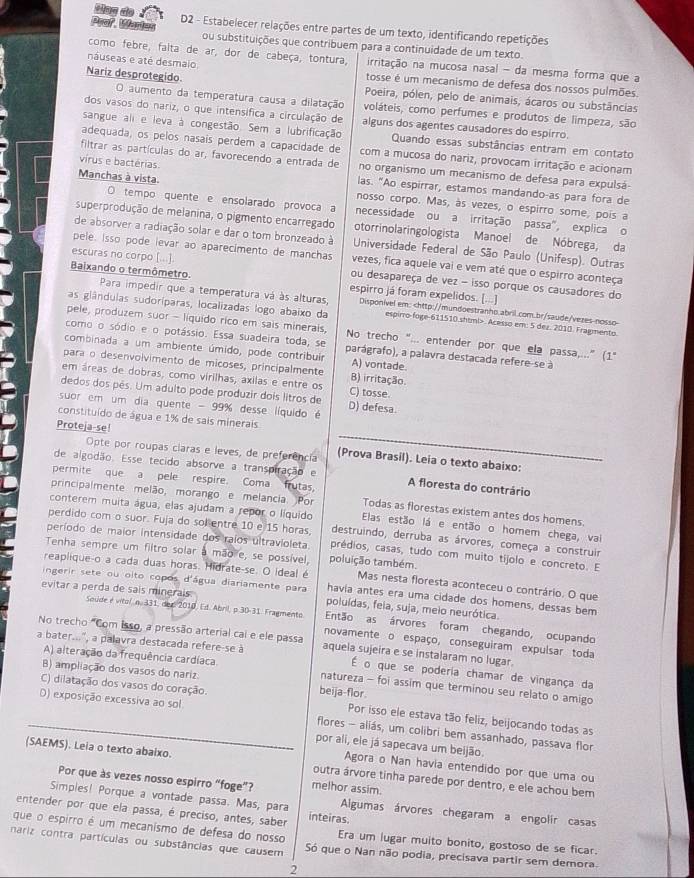 Blog do
Prof. Warles
D2 - Estabelecer relações entre partes de um texto, identificando repetições
ou substituições que contribuem para a continuidade de um texto.
como febre, falta de ar, dor de cabeça, tontura,
náuseas e até desmaio.
Nariz desprotegido.
O aumento da temperatura causa a dilatação
dos vasos do nariz, o que intensifica a circulação de
sangue ali e leva à congestão. Sem a lubrificação
adequada, os pelos nasais perdem a capacidade de
filtrar as partículas do ar, favorecendo a entrada de
vírus e bactérias.
Manchas à vista.
O tempo quente e ensolarado provoca a
superprodução de melanina, o pigmento encarregado
de absorver a radiação solar e dar o tom bronzeado à
pele. Isso pode levar ao aparecimento de manchas
escuras no corpo [...].
Baixando o termômetro.
Para impedir que a temperatura vá às alturas,
as glândulas sudoríparas, localizadas logo abaixo da
pele, produzem suor – líquido rico em sais minerais,
como o sódio e o potássio. Essa suadeira toda, se
combinada a um ambiente úmido, pode contribuir
para o desenvolvimento de micoses, principalmente
em áreas de dobras, como virilhas, axilas e entre os
dedos dos pés. Um adulto pode produzir dois litros de
suor em um dia quente – 99% desse líquido é
constituído de água e 1% de sais minerais.
Proteja-se!
Opte por roupas claras e leves, de preferência
de algodão. Esse tecido absorve a transpiração e
permite que a pele respire. Coma frutas,
principalmente melão, morango e melancia. Por
conterem muita água, elas ajudam a repor o líquido
perdido com o suor. Fuja do sol entre 10 e 15 horas,
período de maior intensidade dos raios ultravioleta.
Tenha sempre um filtro solar à mão e, se possível,
reaplique-o a cada duas horas. Hidrate-se. O ideal é
ingerir sete ou oito copos d'água diariamente para
evitar a perda de sais minerais.
Saúde é vital, n. 331, dez. 2010, Ed. Abril, p.30-31. Fragmento.
No trecho "Com isso, a pressão arterial cai e ele passa
a bater...", a palavra destacada refere-se à
A) alteração da frequência cardíaca.
B) ampliação dos vasos do nariz.
C) dilatação dos vasos do coração.
D) exposição excessiva ao sol.
(SAEMS). Leia o texto abaixo.
Por que às vezes nosso espirro "foge"?
Simples! Porque a vontade passa. Mas, para
entender por que ela passa, é preciso, antes, saber
que o espirro é um mecanismo de defesa do nosso
nariz contra partículas ou substâncias que causem
irritação na mucosa nasal – da mesma forma que a
tosse é um mecanismo de defesa dos nossos pulmões.
Poeira, pólen, pelo de animais, ácaros ou substâncias
voláteis, como perfumes e produtos de limpeza, são
alguns dos agentes causadores do espirro.
Quando essas substâncias entram em contato
com a mucosa do nariz, provocam irritação e acionam
no organismo um mecanismo de defesa para expulsá-
las. "Ao espirrar, estamos mandando-as para fora de
nosso corpo. Mas, às vezes, o espirro some, pois a
necessidade ou a irritação passa", explica o
otorrinolaringologista Manoel de Nóbrega, da
Universidade Federal de São Paulo (Unifesp). Outras
vezes, fica aquele vai e vem até que o espirro aconteça
ou desapareça de vez – isso porque os causadores do
espirro já foram expelidos. [...]
Disponível em: <http://mundoestranho.abril.com.br/saude/vezes-nosso-
espirro-foge-611510.shtml>. Acesso em: 5 dez. 2010. Fragmento.
No trecho "... entender por que ela passa,..." (1°
parágrafo), a palavra destacada refere-se à
A) vontade.
B) irritação.
C) tosse.
D) defesa.
(Prova Brasil). Leia o texto abaixo:
A floresta do contrário
Todas as florestas existem antes dos homens.
Elas estão lá e então o homem chega, vai
destruindo, derruba as árvores, começa a construir
prédios, casas, tudo com muito tijolo e concreto. E
poluição também.
Mas nesta floresta aconteceu o contrário. O que
havia antes era uma cidade dos homens, dessas bem
poluídas, feia, suja, meio neurótica.
Então as árvores foram chegando, ocupando
novamente o espaço, conseguiram expulsar toda
aquela sujeira e se instalaram no lugar.
É o que se poderia chamar de vingança da
natureza – foi assim que terminou seu relato o amigo
beija-flor.
Por isso ele estava tão feliz, beijocando todas as
flores – aliás, um colibri bem assanhado, passava flor
por ali, ele já sapecava um beijão.
Agora o Nan havia entendido por que uma ou
outra árvore tinha parede por dentro, e ele achou bem
melhor assim.
Algumas árvores chegaram a engolir casas
inteiras.
Era um lugar muito bonito, gostoso de se ficar.
Só que o Nan não podia, precisava partir sem demora.
2